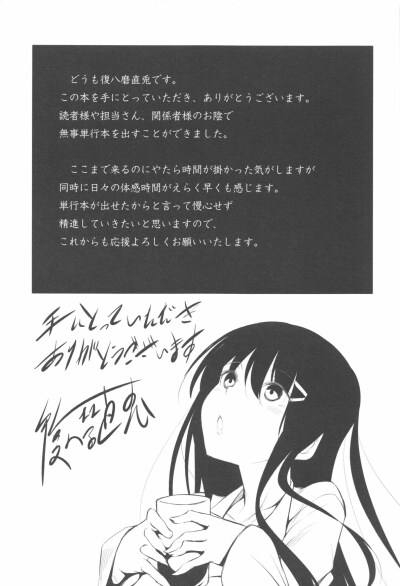 どうも復八磨直兎です。
この本を手にとっていただき、ありがとうございます。
読者様や担当さん、関係者様のお陰で
無事単行本を出すことができました。
ここまで来るのにやたら時間が掛かった気がしますが
同時に日々の体感時間がえらく早くも感じます。
単行本が出せたからと言って慢心せず
精進していきたいと思いますので、
これからも応援よろしくお願いいたします。
手にとっていただき
ありがとうございます